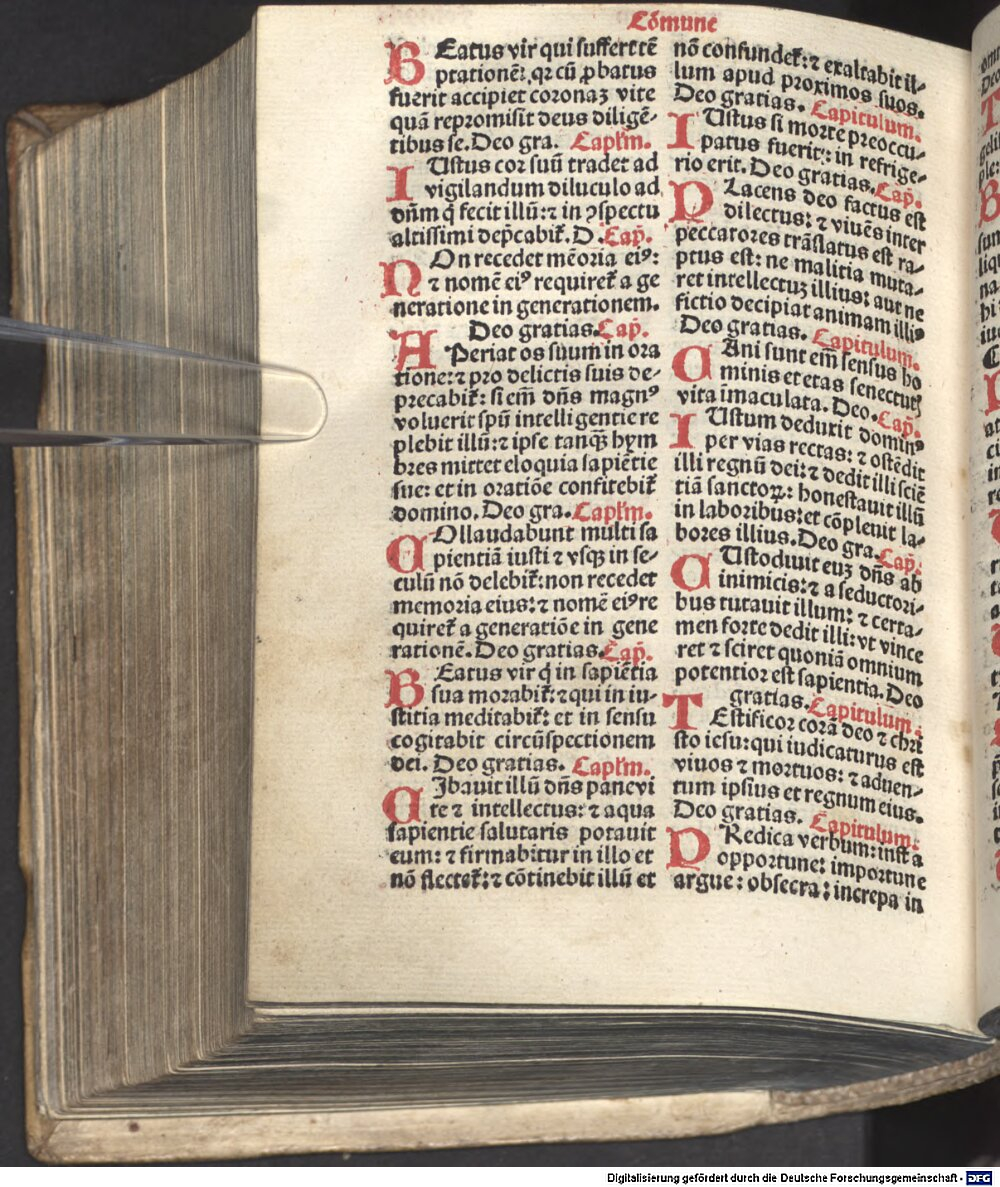 Cōmune
BEatus vir qui suffert tē
ptationē: qꝛ cū ꝓbatus
fuerit accipiet coronaꝫ vite
quā repromisit deus diligē-
tibus se. Deo gra. Caplm̄.
IUstus cor suū tradet ad
vigilandum diluculo ad
dn̄m q̄ fecit illū: ⁊ in ꝯspectu
altissimi dep̄cabit᷑. D. Cap̄.
NOn recedet mēoria eiꝰ:
⁊ nomē eiꝰ requiret᷑ a ge
neratione in generationem.
Deo gratias. Cap̄.
APeriat os suum in ora
tione: ⁊ pro delictis suis de-
precabit᷑: si em̄ dn̄s magnꝰ
voluerit spū intelligentie re
plebit illū: ⁊ ipse tanqꝫ hym
bres mittet eloquia sapiētie
sue: et in oratiōe confitebit᷑
domino. Deo gra. Caplm̄.
COllaudabunt multi sa
pientiā iusti ⁊ vsqꝫ in se-
culū nō delebit᷑: non recedet
memoria eius: ⁊ nomē eiꝰ re
quiret᷑ a generatiōe in gene
rationē. Deo gratias. Cap̄.
BEatus vir q̄ in sapiētia
sua morabit᷑: ⁊ qui in iu-
stitia meditabit᷑: et in sensu
cogitabit circūspectionem
dei. Deo gratias. Caplm̄.
CIbauit illū dn̄s pane vi
te ⁊ intellectus: ⁊ aqua
sapientie salutaris potauit
eum: ⁊ firmabitur in illo et
nō flectet᷑: ⁊ cōtinebit illū et
nō confundet᷑: ⁊ exaltabit il-
lum apud proximos suos.
Deo gratias. Capitulum.
IUstus si morte preoccu-
patus fuerit: in refrige-
rio erit. Deo gratias. Cap̄.
PLacens deo factus est
dilectus: ⁊ viuēs inter
peccatores trāslatus est ra-
ptus est: ne malitia muta-
ret intellectuꝫ illius: aut ne
fictio decipiat animam illiꝰ
Deo gratias. Capitulum.
CAni sunt em̄ sensus ho
minis et etas senectutꝭ
vita imaculata. Deo. Cap̄.
IUstum deduxit dominꝰ
per vias rectas: ⁊ ostēdit
illi regnū dei: ⁊ dedit illi sciē
tiā sanctoꝝ: honestauit illū
in laboribus: et cōpleuit la-
bores illius. Deo gra. Cap̄.
CUstodiuit euꝫ dn̄s ab
inimicis: ⁊ a seductori-
bus tutauit illum: ⁊ certa-
men forte dedit illi: vt vince
ret ⁊ sciret quoniā omnium
potentior est sapientia. Deo
gratias. Capitulum.
TEstificor corā deo ⁊ chri
sto iesu: qui iudicaturus est
viuos ⁊ mortuos: ⁊ aduen-
tum ipsius et regnum eius.
Deo gratias. Capitulum.
PRedica verbum: insta
opportune: importune
argue: obsecra: increpa in
Digitalisierung gefördert durch die Deutsche Forschungsgemeinschaft - DFG